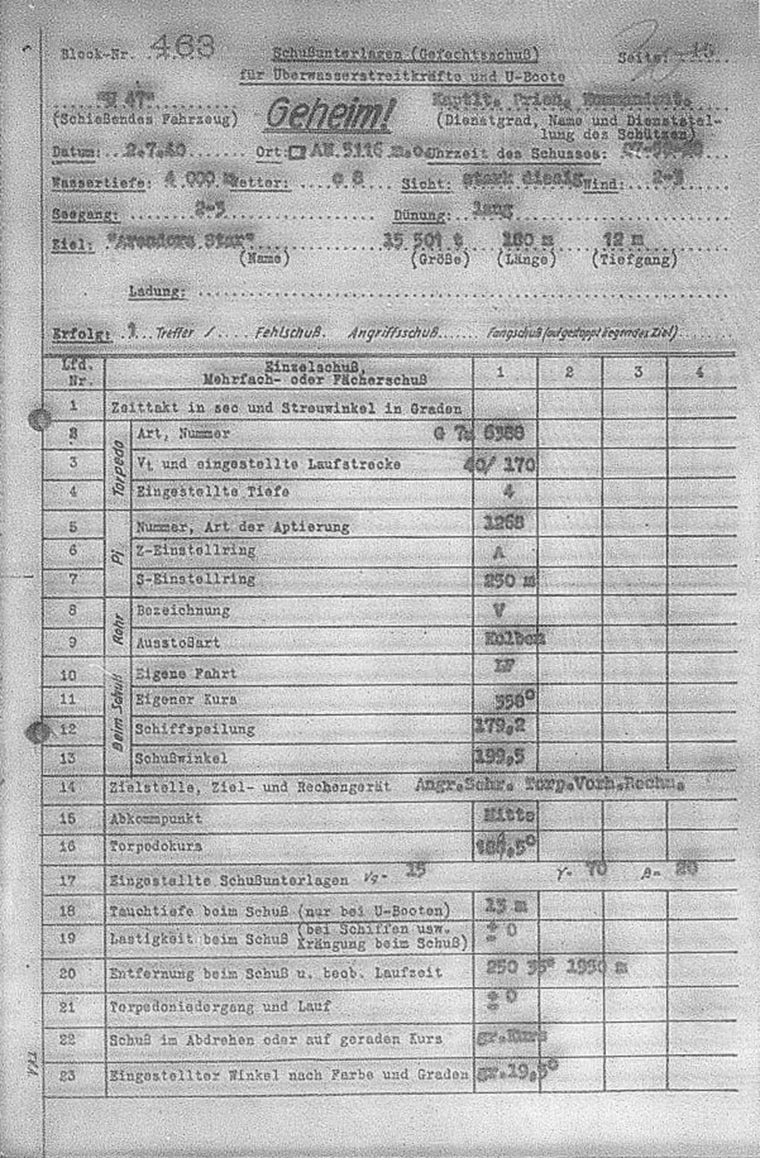 Block-Nr. 463 Schußunterlagen (Gefechtsschuß) Seite: 15
für Überwasserstreitkräfte und U-Boote
"U 47" Geheim! Kaptlt. Prien, Kommandant.
(Schießendes Fahrzeug) (Dienstgrad, Name und Dienststel-
lung des Schützen)
Datum: 2.7.40 Ort: AM.5116 Uhrzeit des Schusses:
Wassertiefe: 4 000 m Wetter: c 8 Sicht: stark diesig Wind: 2-3
Seegang: 2-3 Dünung: lang
Ziel: "Arendora Star" 15 501 t 180 m 12 m
(Name) (Größe) (Länge) (Tiefgang)
Ladung:
Erfolg: 1 Treffer / Fehlschuß. Angriffsschuß Fangschuß (aufgestoppt liegendes Ziel)
Lfd. Nr. Einzelschuß, Mehrfach- oder Fächerschuß 1 2 3 4
1 Zeittakt in sec und Streuwinkel in Graden
Torpedo
2 Art, Nummer G 7a 6388
3 Vt und eingestellte Laufstrecke 40/ 170
4 Eingestellte Tiefe 4
Pi
5 Nummer, Art der Aptierung 1268
6 Z-Einstellring A
7 S-Einstellring 250 m
Rohr
8 Bezeichnung V
9 Ausstoßart Kolben
Beim Schuß
10 Eigene Fahrt LF
11 Eigener Kurs 350°
12 Schiffspeilung 179,2
13 Schußwinkel 199,5
14 Zielstelle, Ziel- und Rechengerät Angr.Sehr. Torp.Vorh.Rechn.
15 Abkommpunkt Mitte
16 Torpedokurs
17 Eingestellte Schußunterlagen Vg= 15 γ= 70 β= 20
18 Tauchtiefe beim Schuß (nur bei U-Booten) 13 m
19 Lastigkeit beim Schuß (bei Schiffen usw. Krängung beim Schuß) ± 0
20 Entfernung beim Schuß u. beob. Laufzeit
21 Torpedoniedergang und Lauf ± 0
22 Schuß im Abdrehen oder auf geraden Kurs gr.Kurs
23 Eingestellter Winkel nach Farbe und Graden gr.19,5°